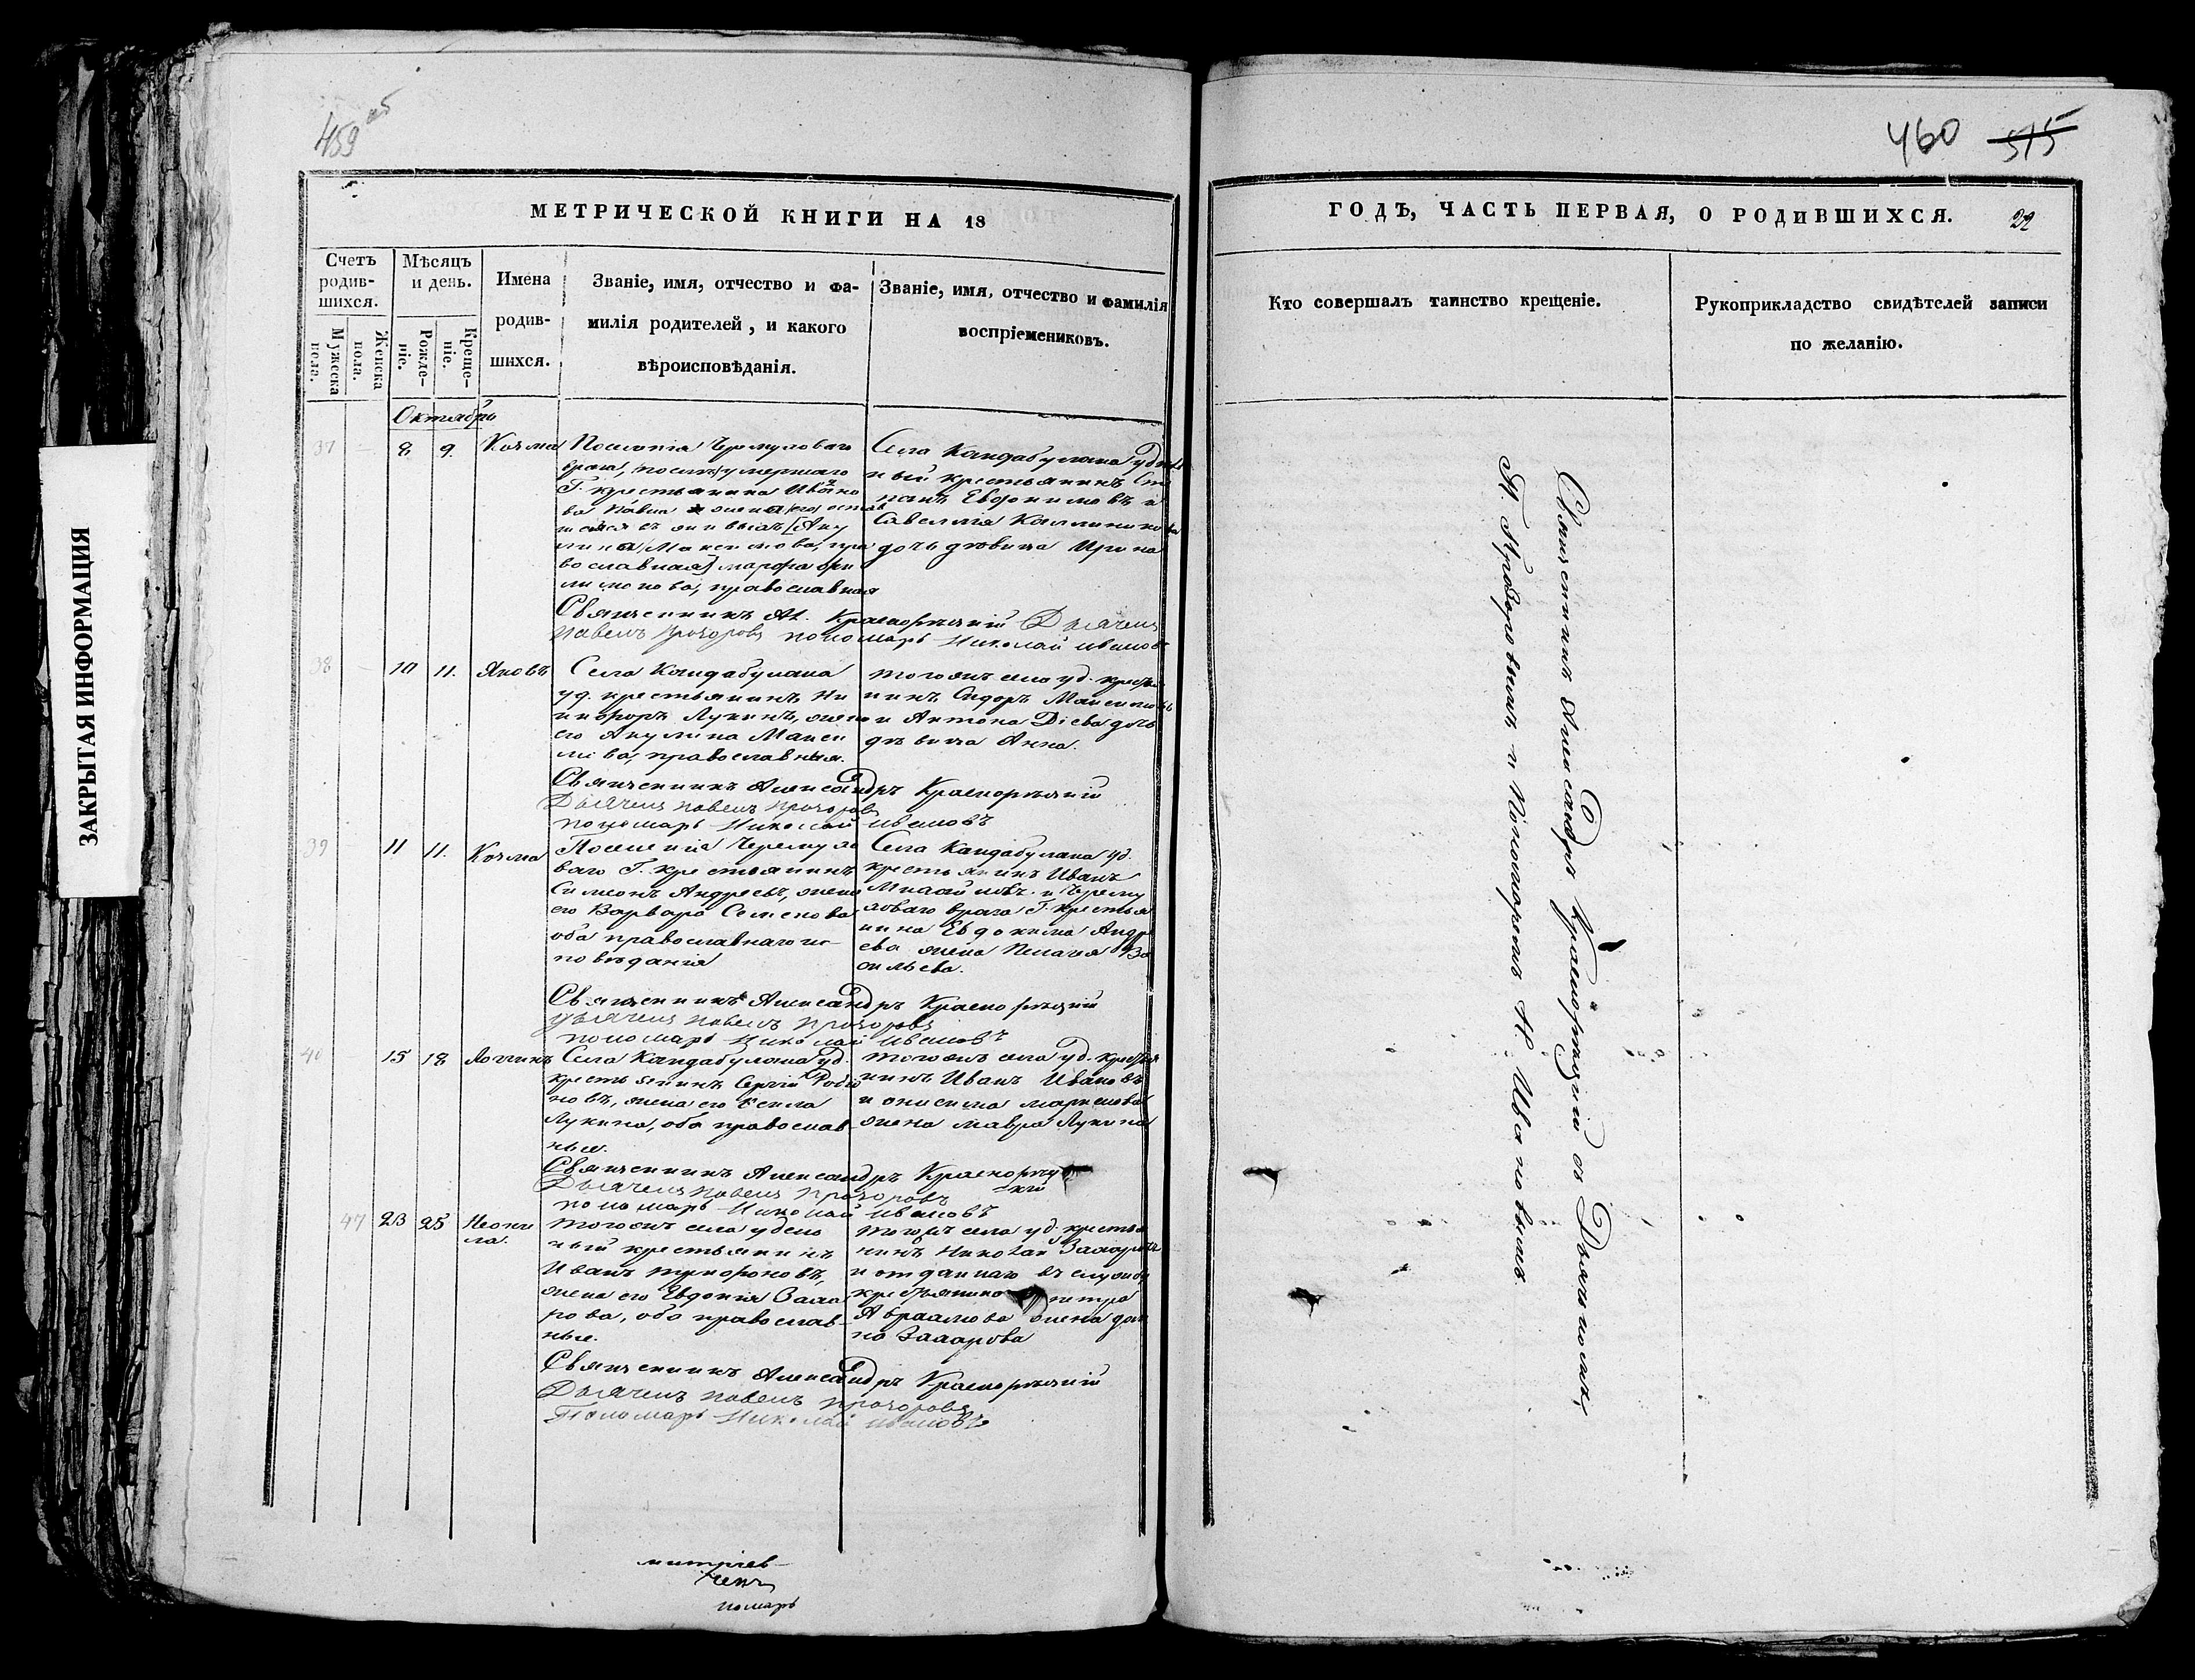 ЗАКРЫТАЯ ИНФОРМАЦИЯ
459 об
МЕТРИЧЕСКОЙ КНИГИ НА 18
Счетъ родив-шихся.
Мужеска пола.
Женска пола.
Мѣсяцъ и день.
Рожде-ніе.
Креще-ніе.
Имена родив-шихся.
Званіе, имя, отчество и фа-
милія родителей, и какого
вѣроисповѣданія.
Званіе, имя, отчество и фамилія
воспріемниковъ.
Октябрь
37 - 8 9. Козма
Г. крестьянина
православная
Села Кандабулака
ный крестьянинъ
панъ Евфимовъ и
дочь дѣвица Ирина
Священникъ Ал. Краснорѣцкій Дьячекъ
Павелъ Прохоровъ пономарь Николай Ивановъ
38 - 10 11. Яковъ
Села Кандабулака
уд. крестьянинъ Ни
кифоръ Лукинъ, жена
его Акулина Макси
мова, православныя.
тогожъ села уд. крестья
нинъ Сидоръ Максимовъ
и Антона Діева дочь
дѣвица Анна.
Священникъ Александръ Краснорѣцкій
Дьячекъ Павелъ Прохоровъ
пономарь Николай Ивановъ
39 - 11 11. Козма
ваго Г. крестьянинъ
Симеонъ Андреевъ, жена
его Варвара Семенова
оба православнаго ис-
повѣданія
Села Кандабулака уд.
крестьянинъ Иванъ
врага Г. крестья
нина Евдокима Андре
ева жена Пелагея Ва
сильева.
Священникъ Александръ Краснорѣцкій
Дьячекъ Павелъ Прохоровъ
пономарь Николай Ивановъ
40 15 18 Логгинъ
Села Кандабулака уд.
крестьянинъ Сергій Родіо
новъ, жена его
Лукина, оба православ-
ные.
тогожъ села уд. крестья
нинъ Иванъ Ивановъ
и Онисима Маркелова
жена Мавра Лукина
Священникъ Александръ Краснорѣц
кій
Дьячекъ Павелъ Прохоровъ
пономарь Николай Ивановъ
47 23 25 Неони
ла.
тогожъ села удель
ный крестьянинъ
Иванъ
жена его Евдокія Заха
рова, оба православ-
ные.
тогожъ села уд. крестья
нинъ Николай Захаровъ
и отданнаго въ службу
крестьянина
Авраамова жена Дом
на Захарова
Священникъ Александръ Краснорѣцкій
Дьячекъ Павелъ Прохоровъ
Пономарь Николай Ивановъ
митріев
чекъ
номарь
460 515
ГОДЪ, ЧАСТЬ ПЕРВАЯ, О РОДИВШИХСЯ. 22
Кто совершалъ таинство крещеніе.
Рукоприкладство свидѣтелей записи
по желанію.
Священникъ Александръ Краснорѣцкій съ Дьячкомъ,
П. Прохоровымъ и Пономаремъ Н. Ивановымъ.